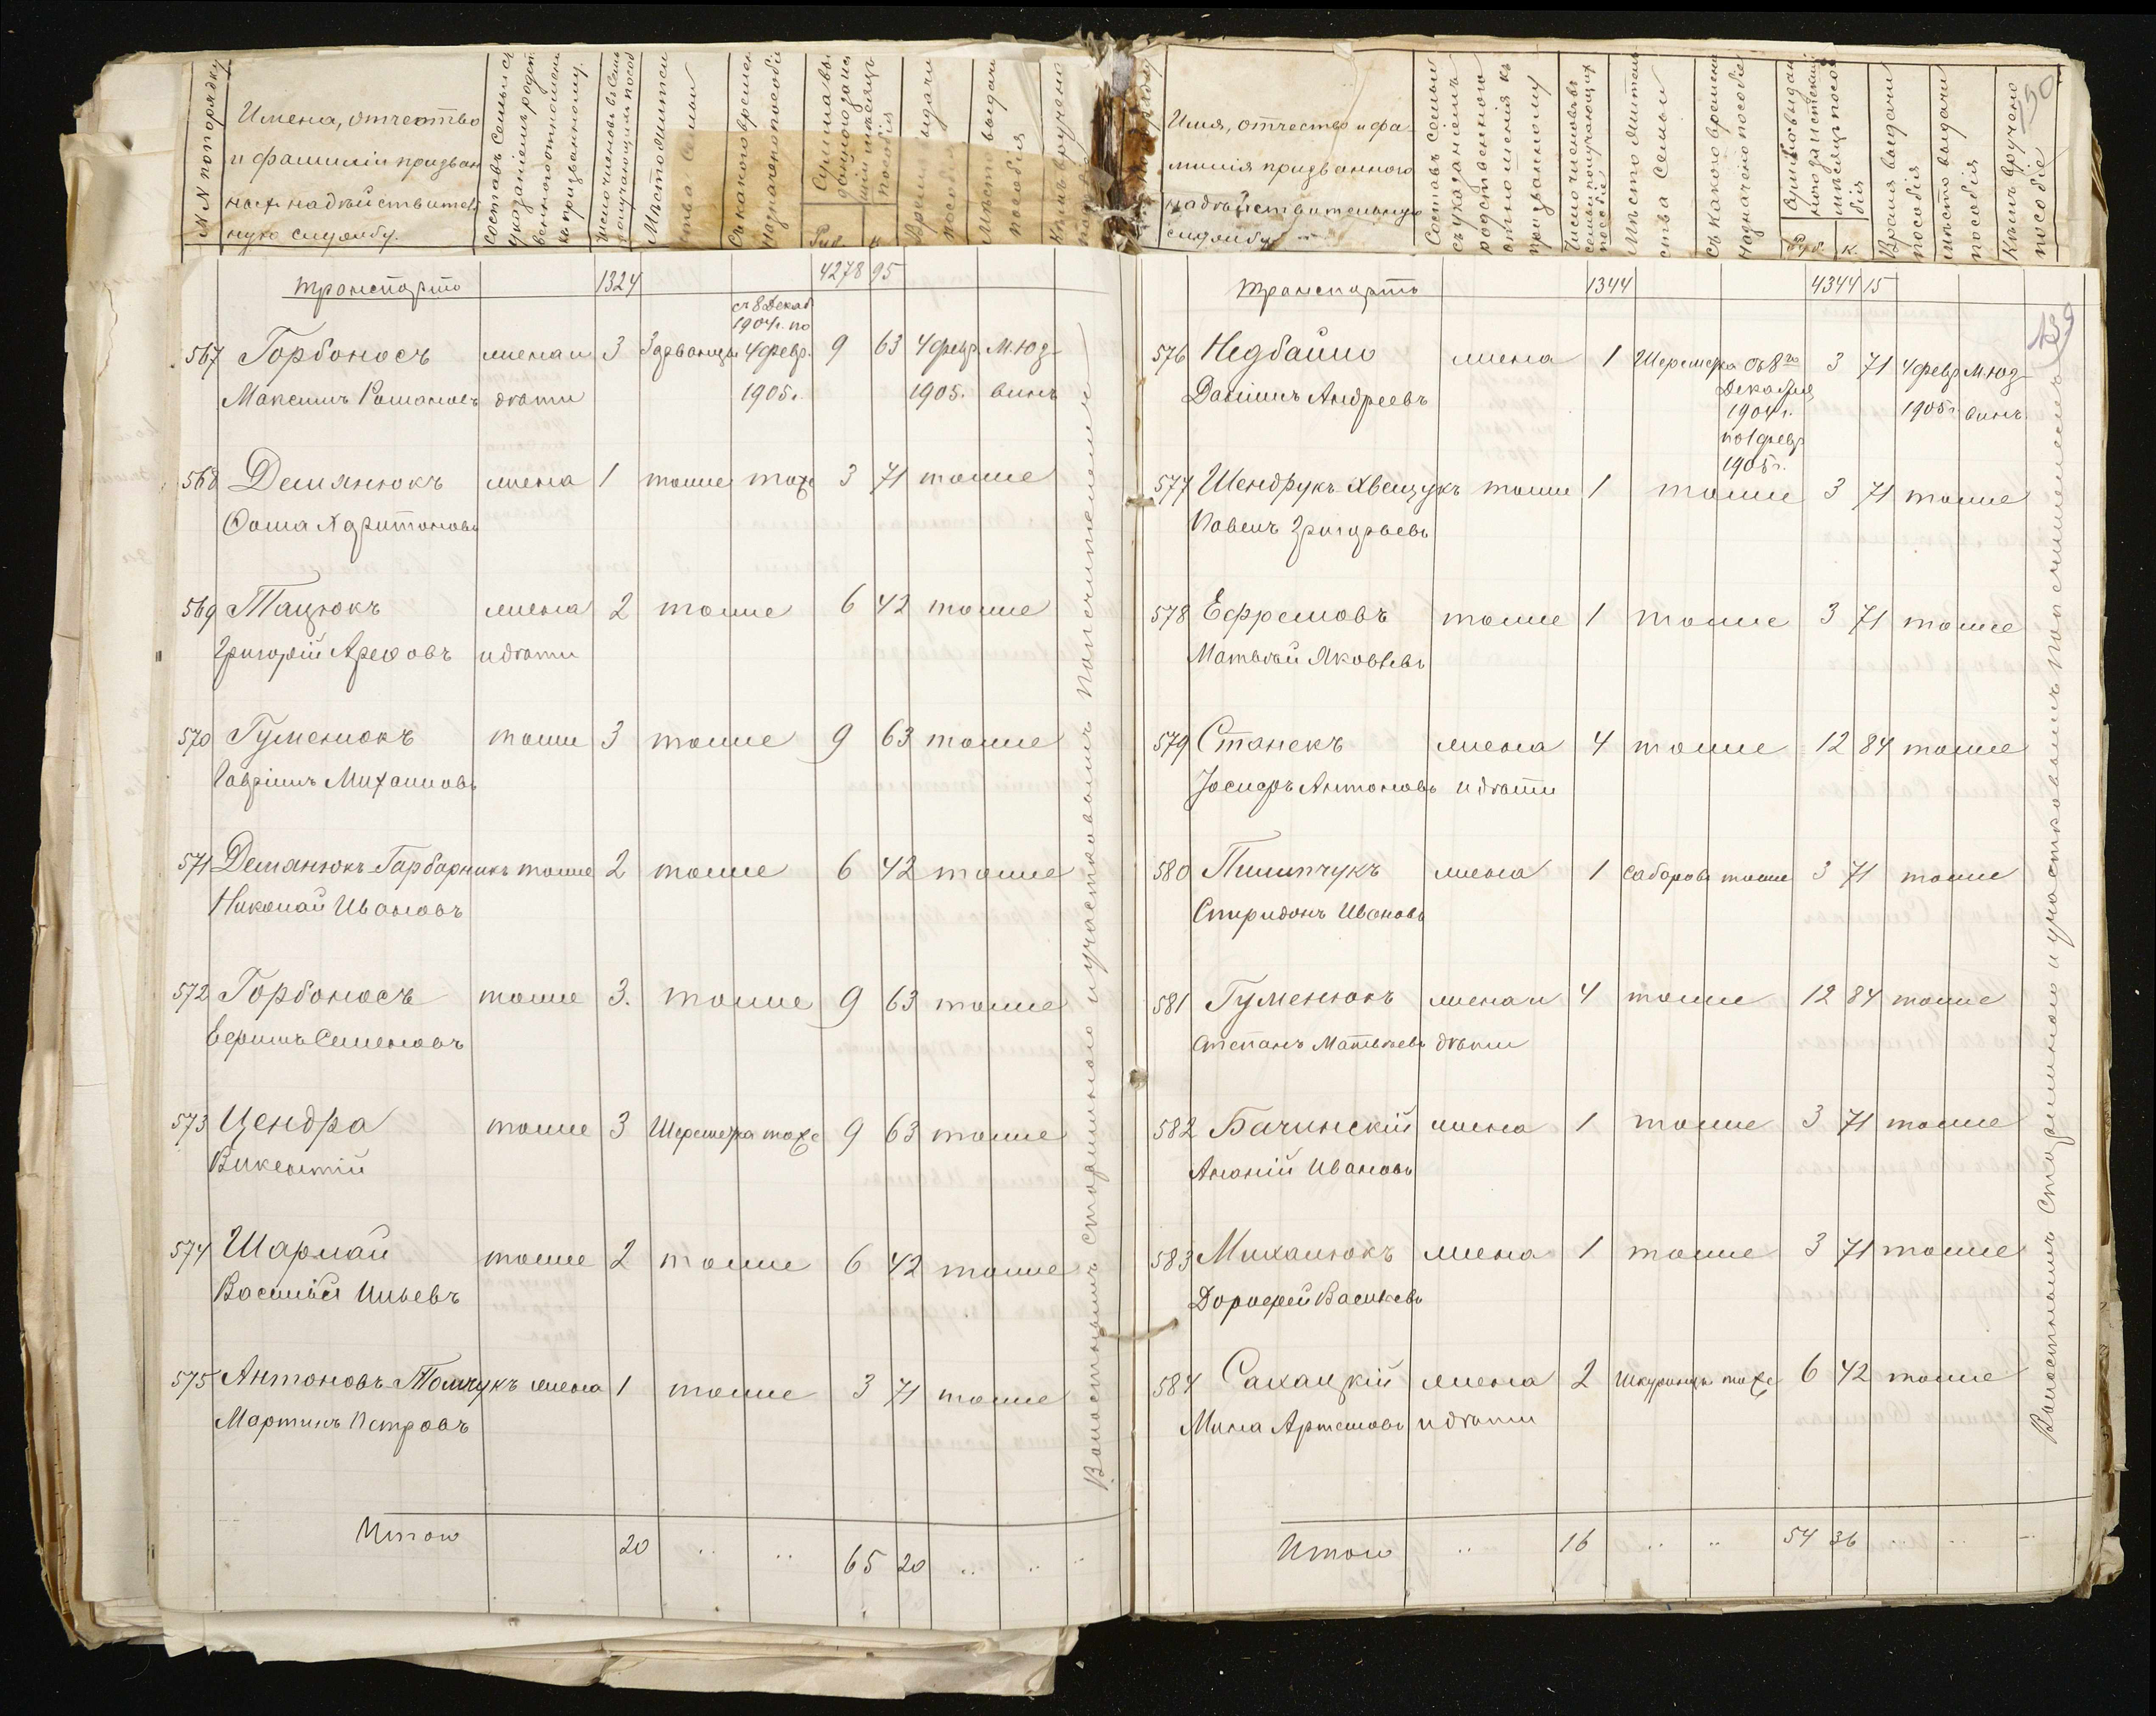 №№ по порядку
Имена, отчество
и фамиліи призван
ныхъ на дѣйствитель
ную службу.
Составъ семьи съ
указаніемъ родст
веннаго отношенія
къ призванному.
Число членовъ въ семьѣ
получающихъ пособ
Мѣстожитель
ства семьи
Съ какого времен
назначено пособіе
Сумма вы
данного за истек
шій мѣсяцъ
пособія
Руб. к.
Время выдачи
пособія
Мѣсто выдачи
пособія
Кѣмъ вручено
транспортъ 1324 4278 95
съ 8 Декаб
1904 г. по
567 Горбоносъ жена и 3 Здзванцы 4 февр. 9 63 4 февр. М. Юз-
Максимъ Романовъ дѣти 1905 г. 1905. винъ
568 Демянюкъ жена 1 тоже тоже 3 71 тоже
Ѳома Харитоновъ
569 Тацюкъ жена 2 тоже 6 42 тоже
Григорій Арефовъ и дѣти
570 Гуменюкъ тоже 3 тоже 9 63 тоже
Гавріилъ Михайловъ
571 Демянюкъ-Гарбарчукъ тоже 2 тоже 6 42 тоже
Николай Ивановъ
572 Горбоносъ тоже 3. тоже 9 63 тоже
Семеновъ
573 Цендра тоже 3 Шереметка тоже 9 63 тоже
Викентій
574 Шармай тоже 2 тоже 6 42 тоже
Василій Ильевъ
575 Антоновъ-Томчукъ жена 1 тоже 3 71 тоже
Мартинъ Петровъ
Итого 20 .. .. 65 20 .. .. ..
Волостнымъ старшиною и участковымъ попечителемъ
Имя, отчество и фа-
милія призваннаго
на дѣйствительную
службу
Составъ семьи
съ указаніемъ
родственнаго
отношенія къ
призванному
Число членовъ
семьи получающихъ
пособіе
Мѣсто житель
ства семьи
Съ какого времени
назначено пособіе
Сумма выдан
ного за истекшій
мѣсяцъ пособ
бія
Руб. к.
Время выдачи
пособія
Мѣсто выдачи
пособія
Кѣмъ вручено
пособіе
150
139
транспортъ 1344 4344 15
576 Недбайло жена 1 Шереметка Съ 8го 3 71 4 февр М. Юз-
Даніилъ Андреевъ Декабря 1905 г. винъ.
1904 г.
по 4 февр
1905 г.
577 Шендрукъ-Хвещукъ тоже 1 тоже 3 71 тоже
Павелъ Григорьевъ
578 Ефремовъ тоже 1 тоже 3 71 тоже
Матвѣй Яковлевъ
579 Станекъ жена 4 тоже 12 84 тоже
Іосифъ Антоновъ и дѣти
580 Пилипчукъ жена 1 Сабаровъ тоже 3 71 тоже
Спиридонъ Ивановъ
581 Гуменюкъ жена и 4 тоже 12 84 тоже
Степанъ Матвѣевъ дѣти
582 Бачинскій жена 1 тоже 3 71 тоже
Ананій Ивановъ
583 Михалюкъ жена 1 тоже 3 71 тоже
Дорофей Васильевъ
584 Сахацкій жена 2 Шкуринцы тоже 6 42 тоже
Мина Артемовъ и дѣти
Итого .. 16 .. .. 54 36 .. ..
Волостнымъ старшиною и участковымъ попечителемъ